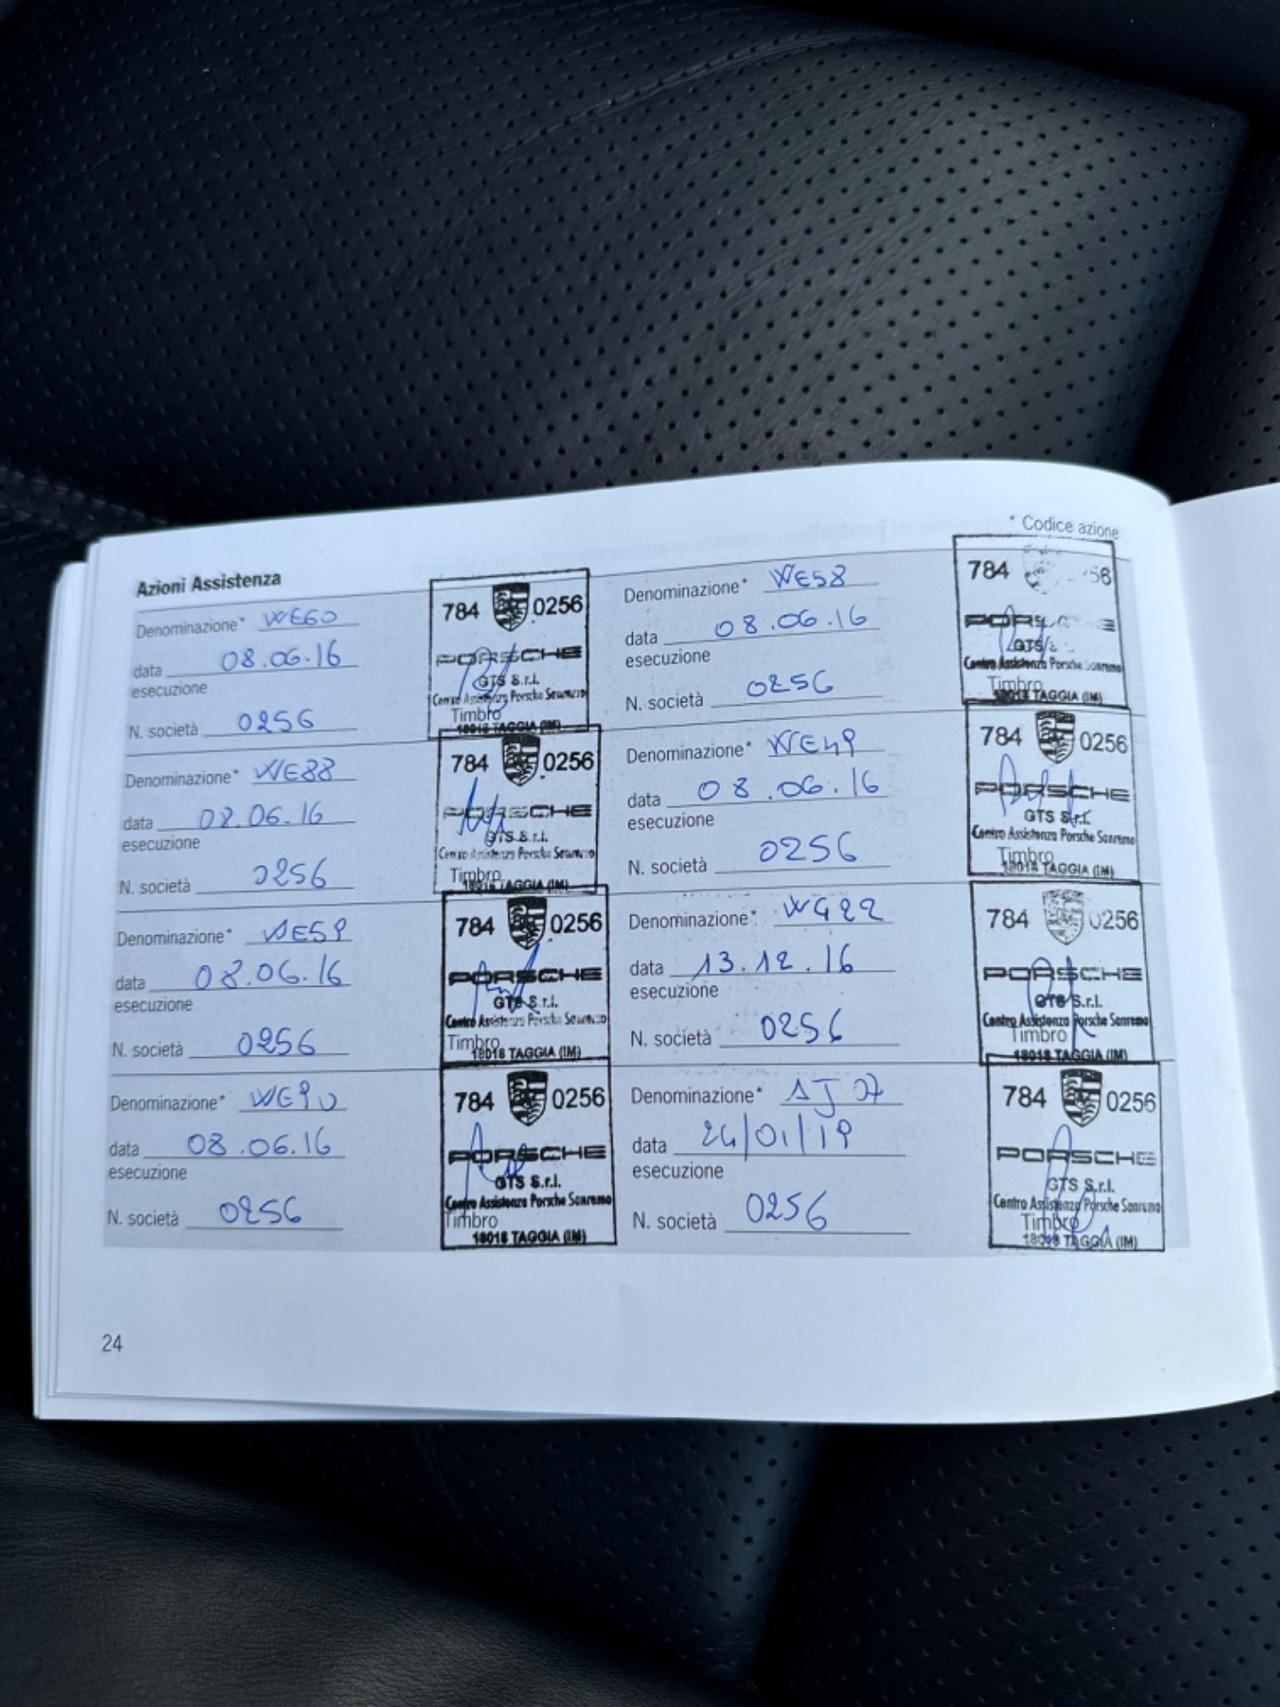 * Codice azione
Azioni Assistenza
Denominazione* WE60
data 08.06.16
esecuzione
N. società 0256
784 0256
PORSCHE
GTS S.r.l.
Centro Assistenza Porsche Sanremo
Timbro
18018 TAGGIA (IM)
Denominazione* WE58
data 08.06.16
esecuzione
N. società 0256
784 56
PORSCHE
GTS
Centro Assistenza Porsche Sanremo
Timbro
18018 TAGGIA (IM)
Denominazione* WE88
data 08.06.16
esecuzione
N. società 0256
784 0256
PORSCHE
GTS S.r.l.
Centro Assistenza Porsche Sanremo
Timbro
18018 TAGGIA (IM)
Denominazione* WE49
data 08.06.16
esecuzione
N. società 0256
784 0256
PORSCHE
GTS S.r.l.
Centro Assistenza Porsche Sanremo
Timbro
18018 TAGGIA (IM)
Denominazione* WE59
data 08.06.16
esecuzione
N. società 0256
784 0256
PORSCHE
GTS S.r.l.
Centro Assistenza Porsche Sanremo
Timbro
18018 TAGGIA (IM)
Denominazione* WG22
data 13.12.16
esecuzione
N. società 0256
784 0256
PORSCHE
GTS S.r.l.
Centro Assistenza Porsche Sanremo
Timbro
18018 TAGGIA (IM)
Denominazione* WE90
data 08.06.16
esecuzione
N. società 0256
784 0256
PORSCHE
GTS S.r.l.
Centro Assistenza Porsche Sanremo
Timbro
18018 TAGGIA (IM)
Denominazione* AJ07
data 24/01/19
esecuzione
N. società 0256
784 0256
PORSCHE
GTS S.r.l.
Centro Assistenza Porsche Sanremo
Timbro
18018 TAGGIA (IM)
24